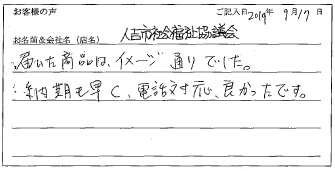 お客様の声
ご記入日 2019年 9月17日
お名前&会社名(店名) 人吉市社会福祉協議会
届いた商品は、イメージ通りでした。
納期も早く、電話対応、良かったです。